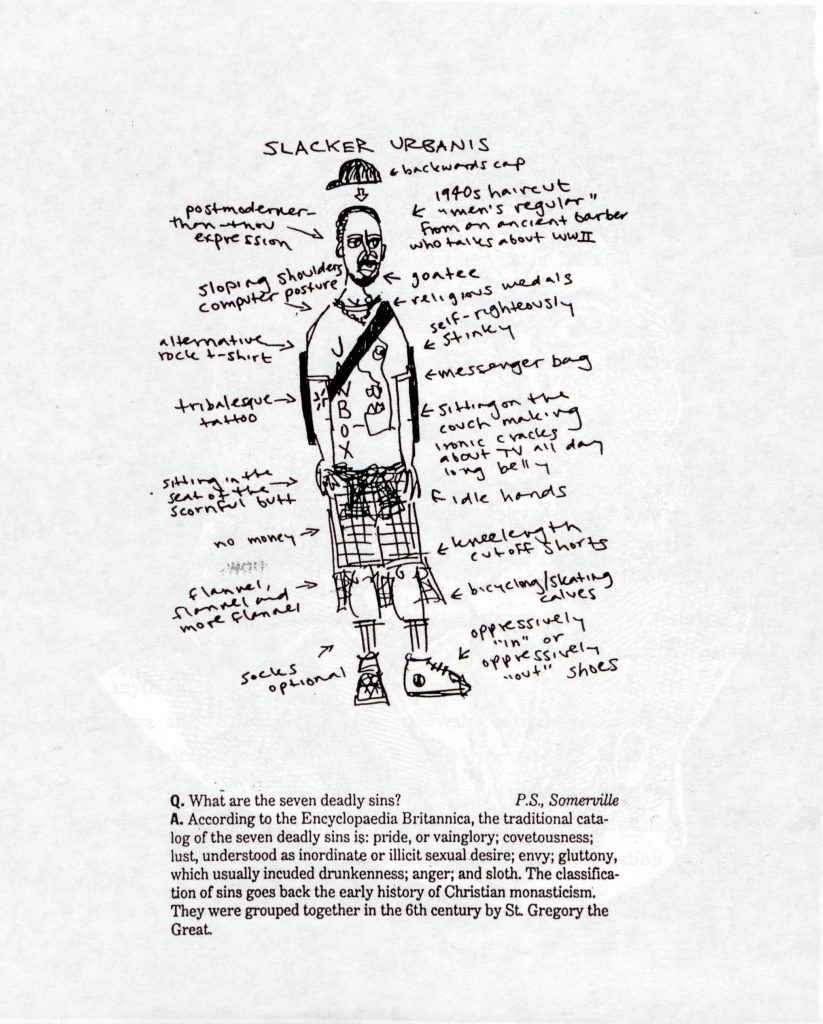 SLACKER URBANIS
backwards cap
1940s haircut
"men's regular"
from an ancient barber
who talks about WWII
postmoderner-
than-thou
expression
goatee
sloping shoulders
computer posture
religious medals
self-righteously
stinky
alternative
rock t-shirt
messenger bag
tribalesque
tattoo
sitting on the
couch making
ironic cracks
about TV all day
long belly
JAWBOX
sitting in the
seat of the
scornful butt
idle hands
no money
kneelength
cutoff shorts
flannel,
flannel and
more flannel
bicycling/skating
calves
oppressively
"in" or
oppressively
"out" shoes
socks
optional
Q. What are the seven deadly sins? P.S., Somerville
A. According to the Encyclopaedia Britannica, the traditional cata-
log of the seven deadly sins is: pride, or vainglory; covetousness;
lust, understood as inordinate or illicit sexual desire; envy; gluttony,
which usually incuded drunkenness; anger; and sloth. The classifica-
tion of sins goes back the early history of Christian monasticism.
They were grouped together in the 6th century by St. Gregory the
Great.